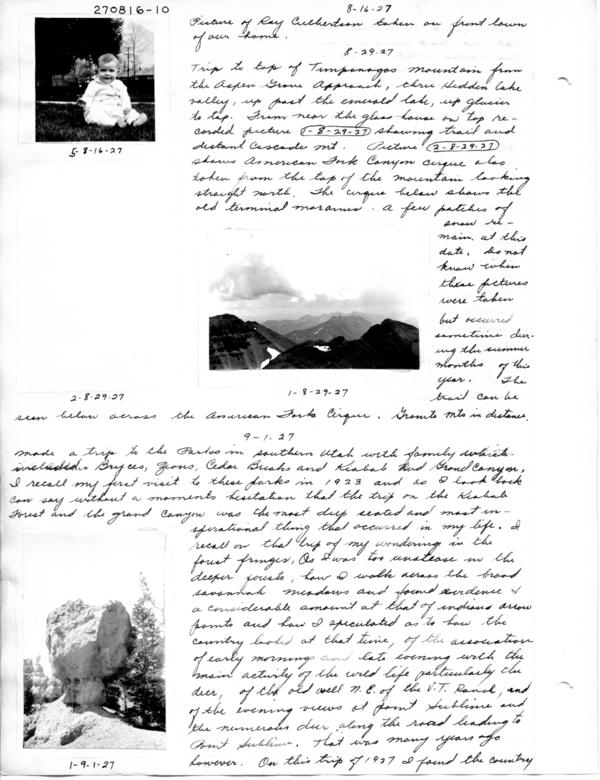 270816-10
8-16-27
Picture of Ray Culbertson taken on front lawn
of our home.
5-8-16-27
8-29-27
Trip to top of Timpanogos mountain from
the Aspen Grove Approach, thru Hidden lake
valley, up past the emerald lake, up glacier
to top. From near the glass house on top re-
corded picture 1-8-29-27 showing trail and
distant Cascade Mt. Picture 2-8-29-27
shows American Fork Canyon cirque also
taken from the top of the mountain looking
straight north. The cirque below shows the
old terminal moraines. A few patches of
snow re-
main at this
date. Do not
know when
these pictures
were taken
but occurred
sometime dur-
ing the summer
months of this
year. The
trail can be
2-8-29-27
1-8-29-27
seen below across the American Forks Cirque. Granite Mts in distance.
9-1-27
Made a trip to the Parks in southern Utah with family which
included Bryces, Zions, Cedar Breaks and Kiabab and Grand Canyon.
I recall my first visit to these parks in 1923 and as I look back
can say without a moments hesitation that the trip on the Kiabab
Forest and the grand Canyon was the most deep seated and most in-
spirational thing that occurred in my life. I
recall on that trip of my wondering in the
forest fringes, As I was too in the
deeper forests, how I walk across the broad
savannah meadows and found evidence &
a considerable amount at that of indians arrow
points and how I speculated as to how the
country looked at that time, of the association
of early mornings and late evening with the
main activity of the wild life particularly the
deer, of the old well N.E. of the V.T. Ranch, and
of the evening views at point Sublime and
the numerous deer along the road leading to
Point Sublime. That was many years ago
however. On this trip of 1927 I found the country
1-9-1-27